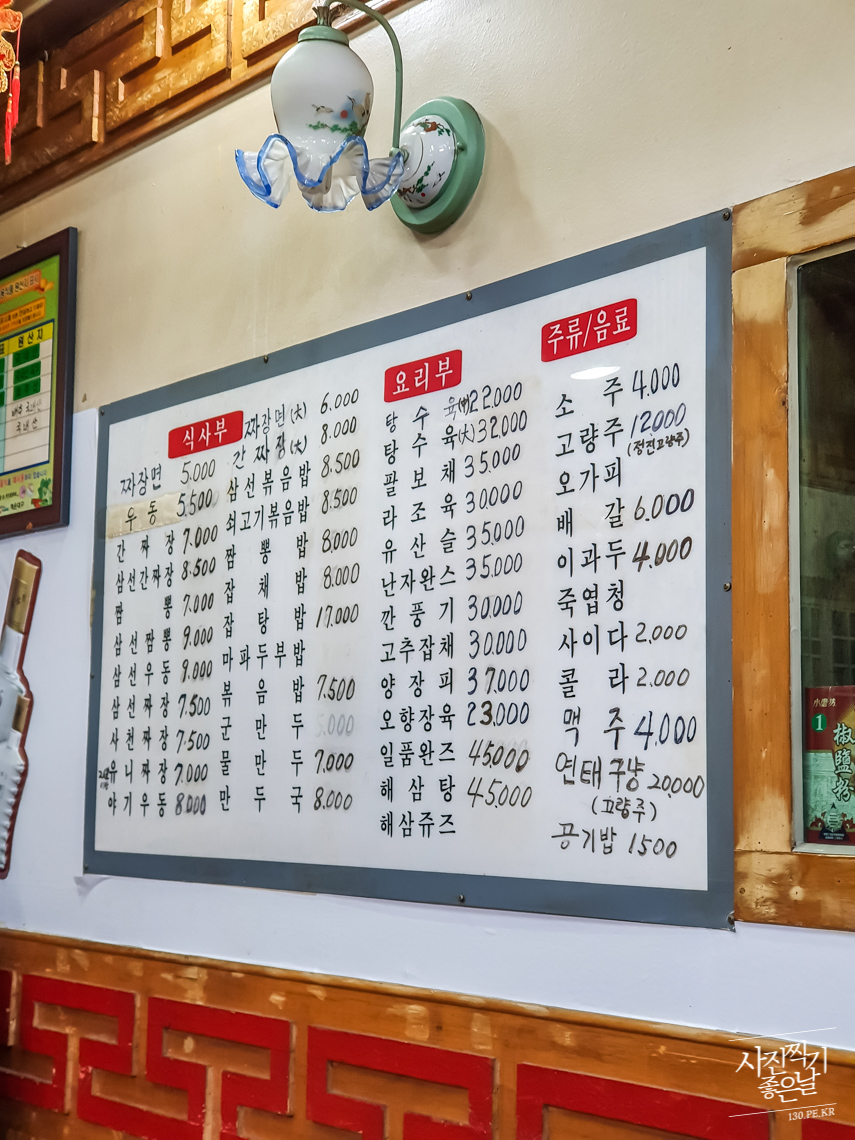 식사부
짜장면 5.000
우동 5.500
간짜장 7.000
삼선간짜장 8.500
짬뽕 7.000
삼선짬뽕 9.000
삼선우동 9.000
삼선짜장 7.500
사천짜장 7.500
유니짜장 7.000
야기우동 8.000
짜장면(大) 6.000
간짜장(大) 8.000
삼선볶음밥 8.500
쇠고기볶음밥 8.500
짬뽕밥 8.000
잡채밥 8.000
잡탕밥 17.000
마파두부밥
볶음밥 7.500
군만두 5.000
물만두 7.000
만두국 8.000
요리부
탕수육(中)22.000
탕수육(大)32.000
팔보채 35.000
라조육 30.000
유산슬 35.000
난자완스 35.000
깐풍기 30.000
고추잡채 30.000
양장피 37.000
오향장육 23.000
일품완즈 45000
해삼탕 45.000
해삼쥬즈
주류/음료
소주 4.000
고량주 12000
오가피
배갈 6.000
이과두 4.000
죽엽청
사이다 2.000
콜라 2.000
맥주 4,000
연태구냥 20,000
(고량주)
공기밥 1500
원산지
小磨坊
1
椒鹽粉
사진찍기
좋은날
130.PE.KR